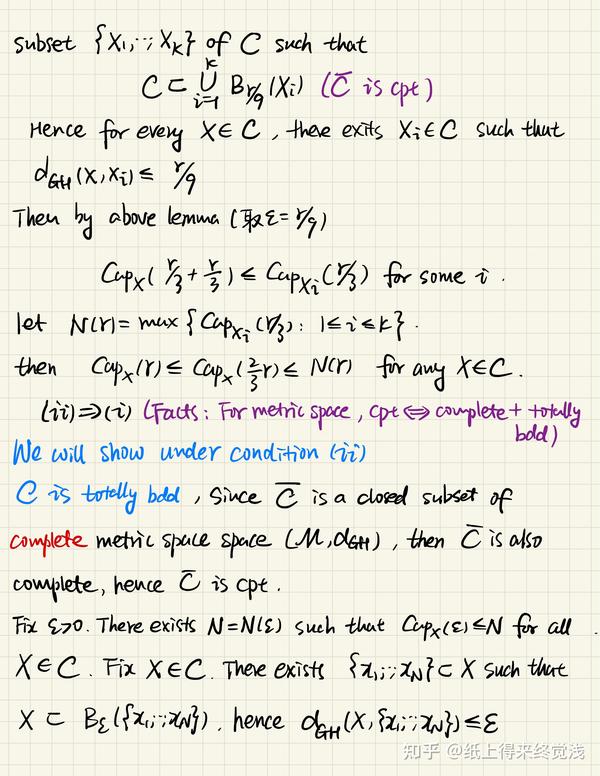 subset {X₁,…,X_K} of C such that
C ⊂ ⋃_{i=1}^{K} B_{r/9}(X_i) (C̄ is cpt)
Hence for every X ∈ C, there exits X_i ∈ C such that
d_{GH}(X, X_i) ≤ r/9
Then by above lemma (取 ε = r/9)
Cap_X(r/3 + r/3) ≤ Cap_{X_i}(r/3) for some i.
let N(r) = max {Cap_{X_i}(r/3): 1≤i≤k}.
then Cap_X(r) ≤ Cap_X(2/3 r) ≤ N(r) for any X ∈ C.
(ii)⇒(i) (Facts: For metric space, cpt ⇔ complete + totally
bdd)
We will show under condition (ii)
C is totally bdd, since C̄ is a closed subset of
complete metric space space (M, d_{GH}), then C̄ is also
complete, hence C̄ is cpt.
Fix ε>0. There exists N=N(ε) such that Cap_X(ε)≤N for all
X∈C. Fix X∈C. There exists {x₁,…,x_N} ⊂ X such that
X ⊂ B_ε({x₁,…,x_N}). hence d_{GH}(X,{x₁,…,x_N}) ≤ ε
知乎 @纸上得来终觉浅